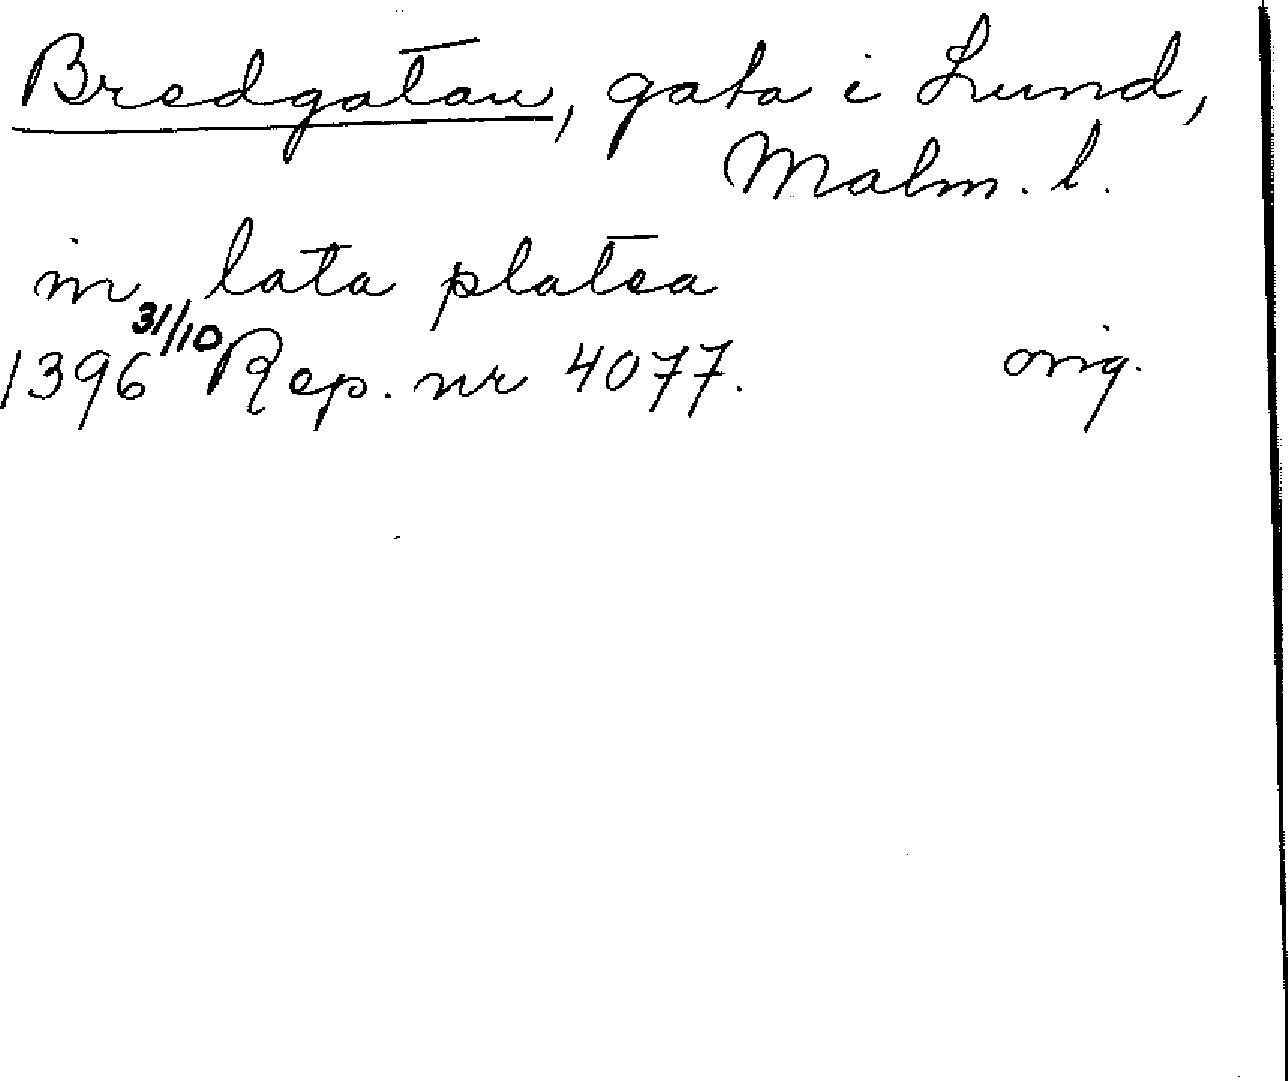 Bredgatan, gata i Lund,
Malm. l.
in lata platea
1396 31/10 Rep. nr 4077. orig.